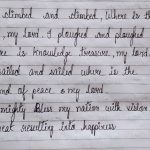 I climbed and climbed, where is the
, my lord. I ploughed and ploughed
re is knowledge treasure, my lord
sailed and sailed where is the
and of peace o my lord
mighty bless my nation with
eat resulting into happiness